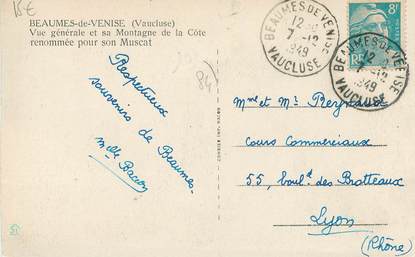 15€
BEAUMES-de-VENISE (Vaucluse)
Vue générale et sa Montagne de la Côte
renommée pour son Muscat
84
BEAUMES DE VENISE
12
7-12
1949
VAUCLUSE
8F
RF
BEAUMES DE VENISE
12
7-12
1949
VAUCLUSE
Respectueux
souvenirs de Beaumes-
Mlle
Mme et Mr
Cours Commerciaux
55, bould des Brotteaux
Lyon
(Rhône)